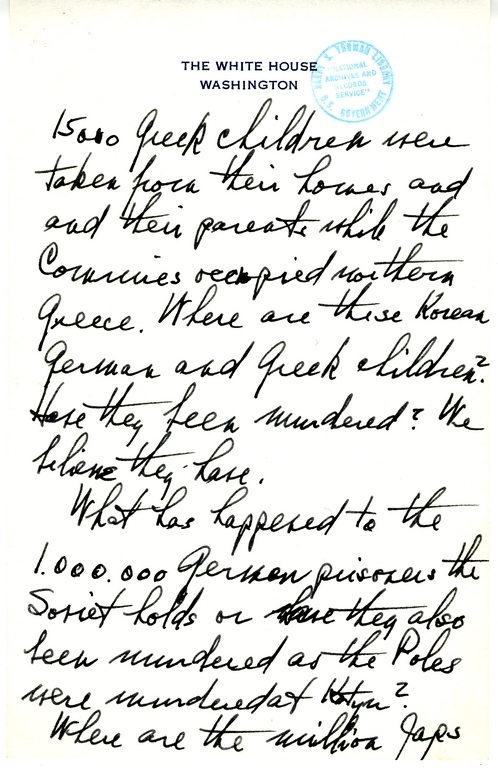 THE WHITE HOUSE
WASHINGTON
HARRY S. TRUMAN LIBRARY
"NATIONAL
ARCHIVES AND
RECORDS
SERVICE"
U.S. GOVERNMENT
15000 Greek children were
taken from their homes and
and their parents while the
Commies occupied northern
Greece. Where are these Korean
German and Greek children?
Have they been murdered? We
believe they have.
What has happened to the
1.000.000 German prisoners the
Soviet holds or have they also
been murdered as the Poles
were murdered at Katyn?
Where are the million Japs